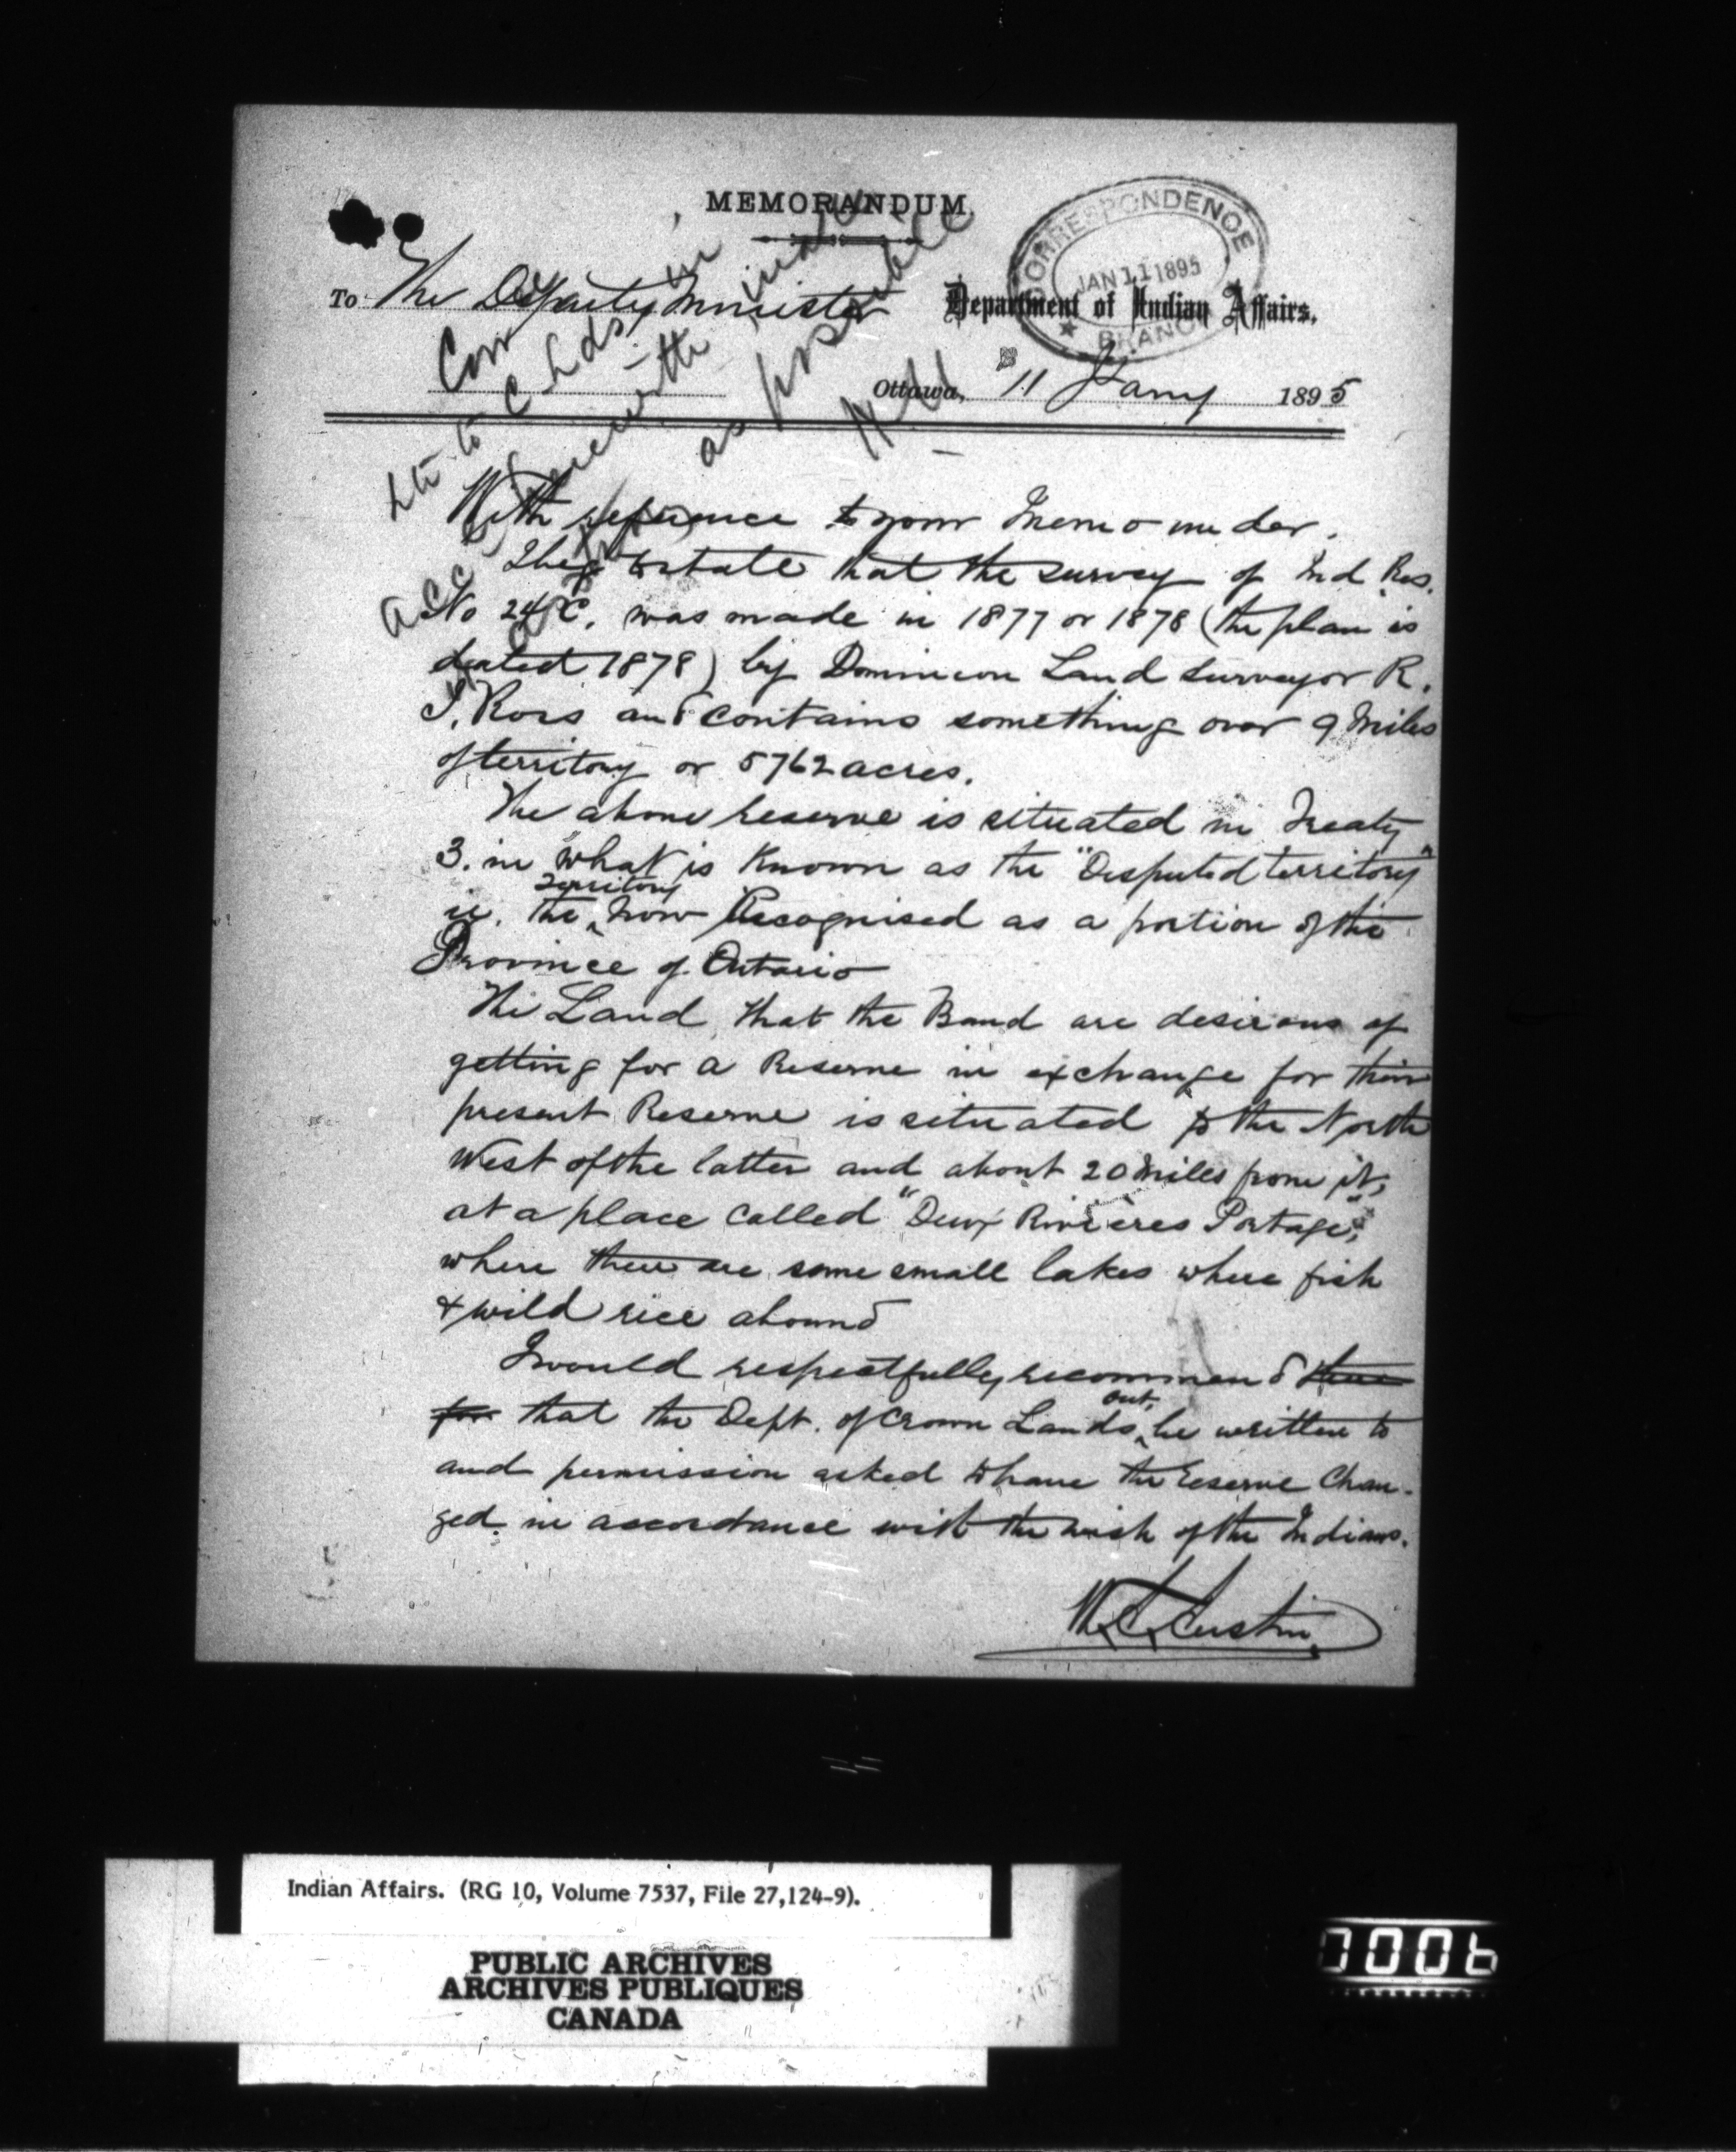 MEMORANDUM
CORRESPONDENCE
JAN 11 1895
BRANCH
To The Deputy Minister
Department of Indian Affairs,
Ottawa, 11 Jany 1895
Corr
Lr to C Lds in
acc herewith
as possible
With reference to your Memo under.
I beg to state that the survey of Ind Res.
No 24 C. was made in 1877 or 1878 (the plan is
dated 1878) by Dominion Land Surveyor R.
J. Ross and contains something over 9 Miles
of territory or 5762 acres.
The above reserve is situated in Treaty
3. in what is known as the "Disputed territory"
ie. the territory now Recognised as a portion of the
Province of Ontario
The Land that the Band are desirous of
getting for a Reserve in exchange for their
present Reserve is situated to the North
West of the latter and about 20 Miles from it,
at a place called "Deux Rivieres Portage",
where there are some small lakes where fish
& wild rice abound
I would respectfully recommend there
fore that the Dept. of Crown Lands, Ont, be written to
and permission asked to have the Reserve Chan-
ged in accordance with the wish of the Indians.
W. A. Austin
Indian Affairs. (RG 10, Volume 7537, File 27,124-9).
PUBLIC ARCHIVES
ARCHIVES PUBLIQUES
CANADA
0006